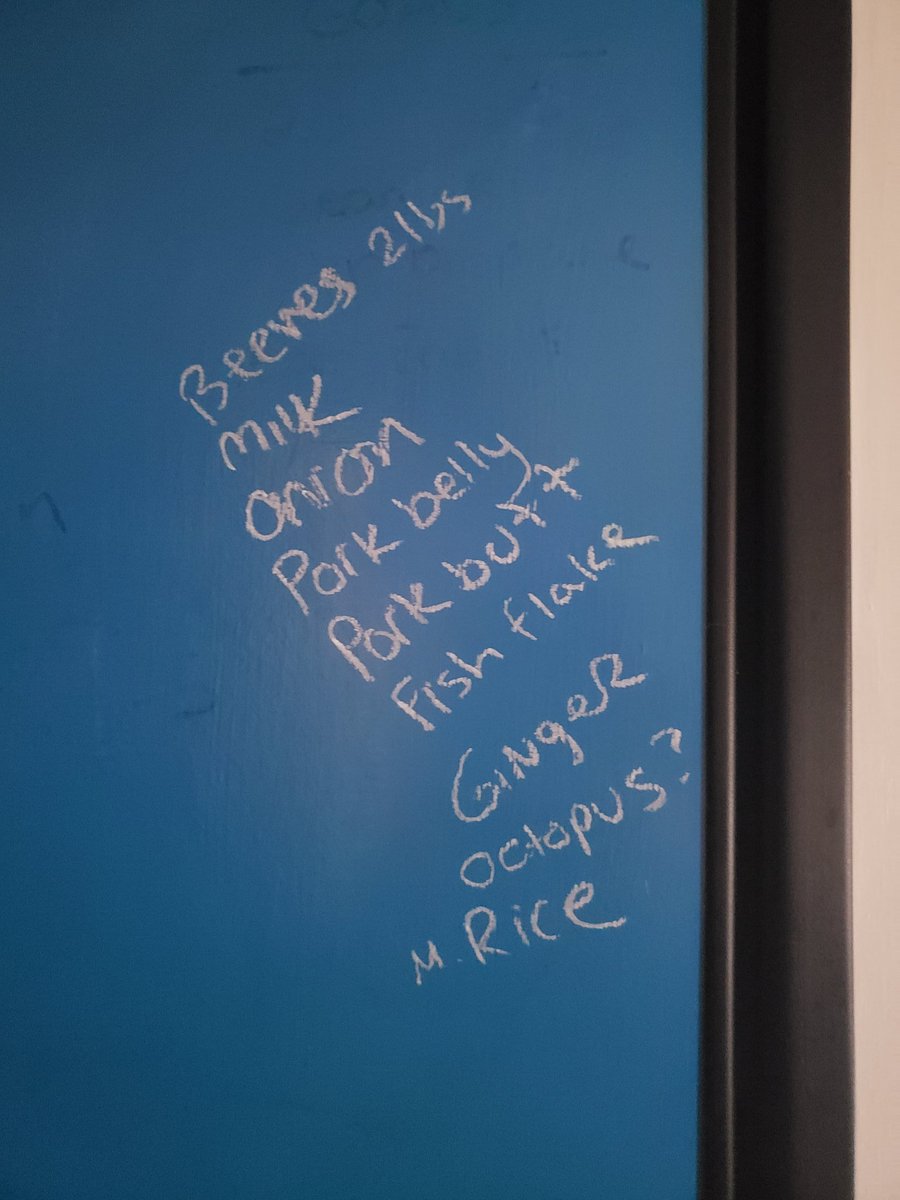 Beeves 2lbs
milk
onion
Pork belly
Pork butt
fish flake
GiNgeR
Octopus?
M. Rice